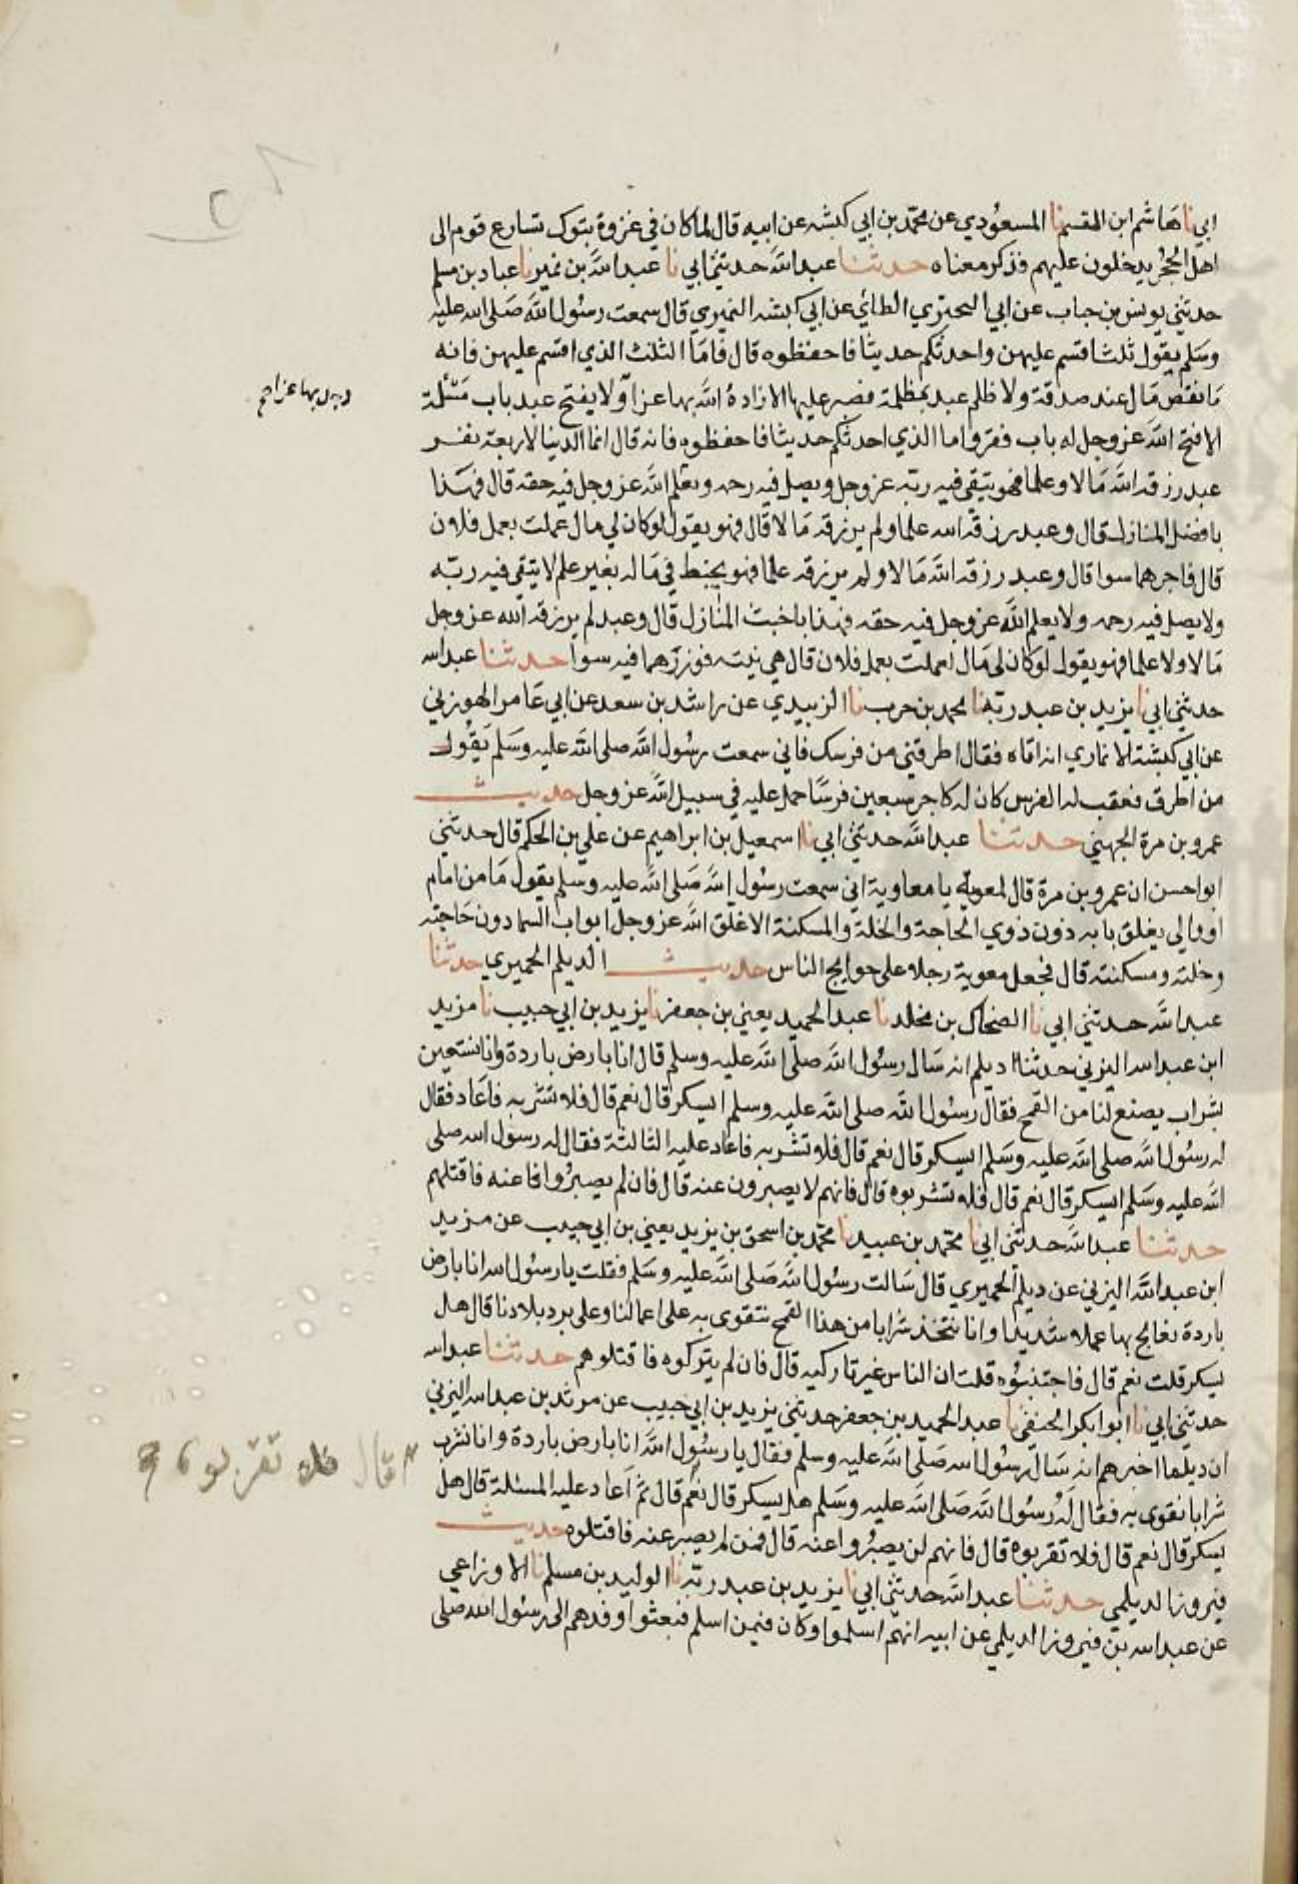 ابي نا هاشم ابن القسم نا المسعودي عن محمد بن ابي كبشه عن ابيه قال لما كان في غزوة تبوك تسارع قوم الى
اهل الحجر يدخلون عليهم فذكر معناه حدثنا عبد الله حدثني ابي نا عبد الله بن نمير نا عباد بن مسلم
حدثني يونس بن جناب عن ابي البحتري الطائي عن ابي كبشه النميري قال سمعت رسول الله صلى الله عليه
وسلم يقول ثلث اقسم عليهن واحدثكم حديثا فاحفظوه قال فاما الثلث الذي اقسم عليهن فانه
ما نقص مال عند صدقة ولا ظلم عبد بمظلمة فصبر عليها الا زاده الله بها عزا ولا يفتح عبد باب مسئلة
الا فتح الله عز وجل له باب فقر واما الذي احدثكم حديثا فاحفظوه فانه قال انما الدنيا لاربعة نفر
عبد رزقه الله مالا وعلما فهو يتقي فيه ربه عز وجل ويصل فيه رحمه ويعلم الله عز وجل فيه حقه قال فهذا
بافضل المنازل قال وعبد رزقه الله علما ولم يرزقه مالا قال فهو يقول لو كان لي مال عملت بعمل فلان
قال فاجرهما سوا قال وعبد رزقه الله مالا ولم يرزقه علما فهو يخبط في ماله بغير علم لا يتقي فيه ربه
ولا يصل فيه رحمه ولا يعلم الله عز وجل فيه حقه فهذا باخبث المنازل قال وعبد لم يرزقه الله عز وجل
مالا ولا علما فهو يقول لو كان لي مال لعملت بعمل فلان قال هي نيته فوزرهما فيه سوا حدثنا عبد الله
حدثني ابي نا يزيد بن عبد ربه نا محمد بن حرب نا الزبيدي عن راشد بن سعد عن ابي عامر الهوزني
عن ابي كبشة الانماري انه اتاه فقال اطرقني من فرسك فاني سمعت رسول الله صلى الله عليه وسلم يقول
من اطرق فعقب له الفرس كان له كاجر سبعين فرسا حمل عليه في سبيل الله عز وجل حديث
عمرو بن مرة الجهني حدثنا عبد الله حدثني ابي نا اسمعيل بن ابراهيم عن علي بن الحكم قال حدثني
ابو احسن ان عمرو بن مرة قال لمعوية يا معاوية اني سمعت رسول الله صلى الله عليه وسلم يقول ما من امام
او والي يغلق بابه دون ذوي الحاجة والخلة والمسكنة الا غلق الله عز وجل ابواب السما دون حاجته
وخلته ومسكنته قال فجعل معوية رجلا على حوايج الناس حديث الديلم الحميري حدثنا
عبد الله حدثني ابي نا الضحاك بن مخلد نا عبد الحميد يعني بن جعفر نا يزيد بن ابي حبيب نا مزيد
ابن عبد الله اليزني حدثنا ديلم انه سال رسول الله صلى الله عليه وسلم قال انا بارض باردة وانا نستعين
بشراب يصنع لنا من القمح فقال رسول الله صلى الله عليه وسلم ايسكر قال نعم قال فلا تشربه فاعاد فقال
له رسول الله صلى الله عليه وسلم ايسكر قال نعم قال فلا تشربه فاعاد عليه الثالثة فقال له رسول الله صلى
الله عليه وسلم ايسكر قال نعم قال فلا تشربوه قال فانهم لا يصبرون عنه قال فان لم يصبروا فا عنه فاقتلهم
حدثنا عبد الله حدثني ابي نا محمد بن عبيد نا محمد بن اسحق بن يزيد يعني بن ابي حبيب عن مزيد
ابن عبد الله اليزني عن ديلم الحميري قال سالت رسول الله صلى الله عليه وسلم فقلت يا رسول الله انا بارض
باردة نعالج بها عملا شديدا وانا نتخذ شرابا من هذا القمح نتقوى به على اعمالنا وعلى برد بلادنا قال هل
يسكر قلت نعم قال فاجتنبوه قلت ان الناس غير تاركيه قال فان لم يتركوه فاقتلوهم حدثنا عبد الله
حدثني ابي نا ابو ابكر الحنفي نا عبد الحميد بن جعفر حدثني يزيد بن ابي حبيب عن مرثد بن عبد الله اليزني
ان ديلما اخبرهم انه سال رسول الله صلى الله عليه وسلم فقال يا رسول الله انا بارض باردة وانا نشرب
شرابا نقوى به فقال له رسول الله صلى الله عليه وسلم هل يسكر قال نعم قال ثم اعاد عليه المسئلة قال هل
يسكر قال نعم قال فلا تقربوه قال فانهم لن يصبروا عنه قال فمن لم يصبر عنه فاقتلوه حديث
فيروز الديلمي حدثنا عبد الله حدثني ابي نا يزيد بن عبد ربه نا الوليد بن مسلم نا الاوزاعي
عن عبد الله بن فيروز الديلمي عن ابيه انهم اسلموا وكان فيمن اسلم فبعثوا وفدهم الى رسول الله صلى
قال فلا تقربوه